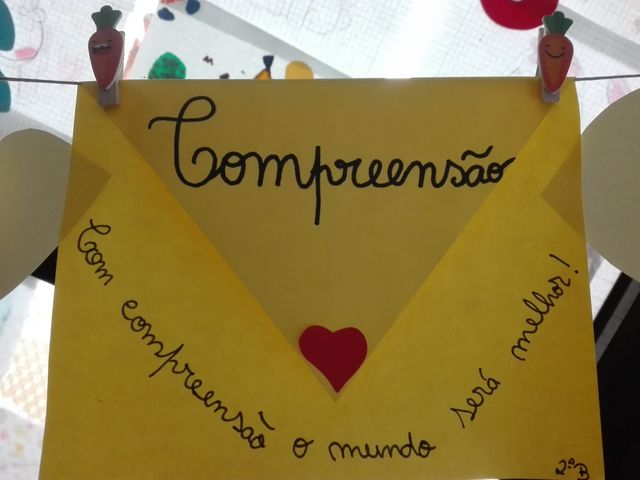 Compreensão
Com compreensão o mundo será melhor!
2.º B